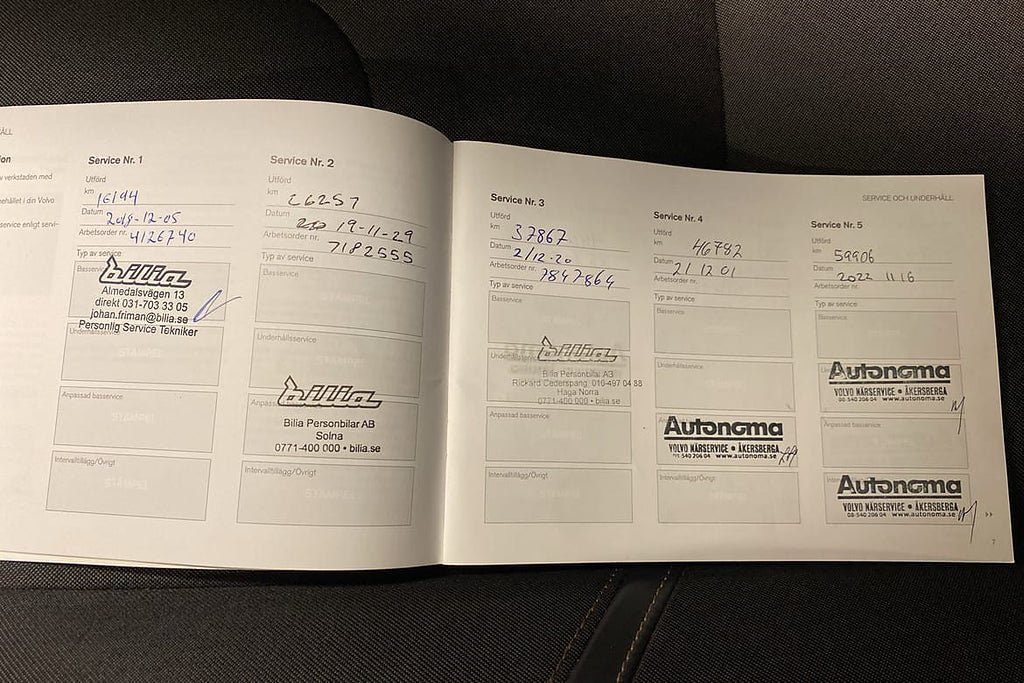 ÅLL
ion
verkstaden med
ehållet i din Volvo
service enligt servi-
Service Nr. 1
Utförd
km 16194
Datum 2018-12-05
Arbetsorder nr. 4126740
Typ av service
Basservice
bilia
Almedalsvägen 13
direkt 031-703 33 05
johan.friman@bilia.se
Personlig Service Tekniker
Underhållsservice
STÄMPEL
Anpassad basservice
STÄMPEL
Intervalltillägg/Övrigt
STÄMPEL
Service Nr. 2
Utförd
km 26257
Datum 19-11-29
Arbetsorder nr. 7182555
Typ av service
Basservice
STÄMPEL
Underhållsservice
STÄMPEL
bilia
Bilia Personbilar AB
Solna
0771-400 000 • bilia.se
Intervalltillägg/Övrigt
STÄMPEL
Service Nr. 3
Utförd
km 37867
Datum 2/12-20
Arbetsorder nr. 7847864
Typ av service
Basservice
bilia
Bilia Personbilar AB
Rickard Cederspang 010-497 04 88
Haga Norra
0771-400 000 • bilia.se
Anpassad basservice
Intervalltillägg/Övrigt
Service Nr. 4
Utförd
km 46782
Datum 21 12 01
Arbetsorder nr.
Typ av service
Basservice
Underhållsservice
Autonoma
VOLVO NÄRSERVICE • ÅKERSBERGA
08-540 206 04 www.autonoma.se
Intervalltillägg/Övrigt
SERVICE OCH UNDERHÅLL
Service Nr. 5
Utförd
km 59906
Datum 2022 11 16
Arbetsorder nr.
Typ av service
Basservice
Autonoma
VOLVO NÄRSERVICE • ÅKERSBERGA
08-540 206 04 www.autonoma.se
Anpassad basservice
Autonoma
VOLVO NÄRSERVICE • ÅKERSBERGA
08-540 206 04 www.autonoma.se
7